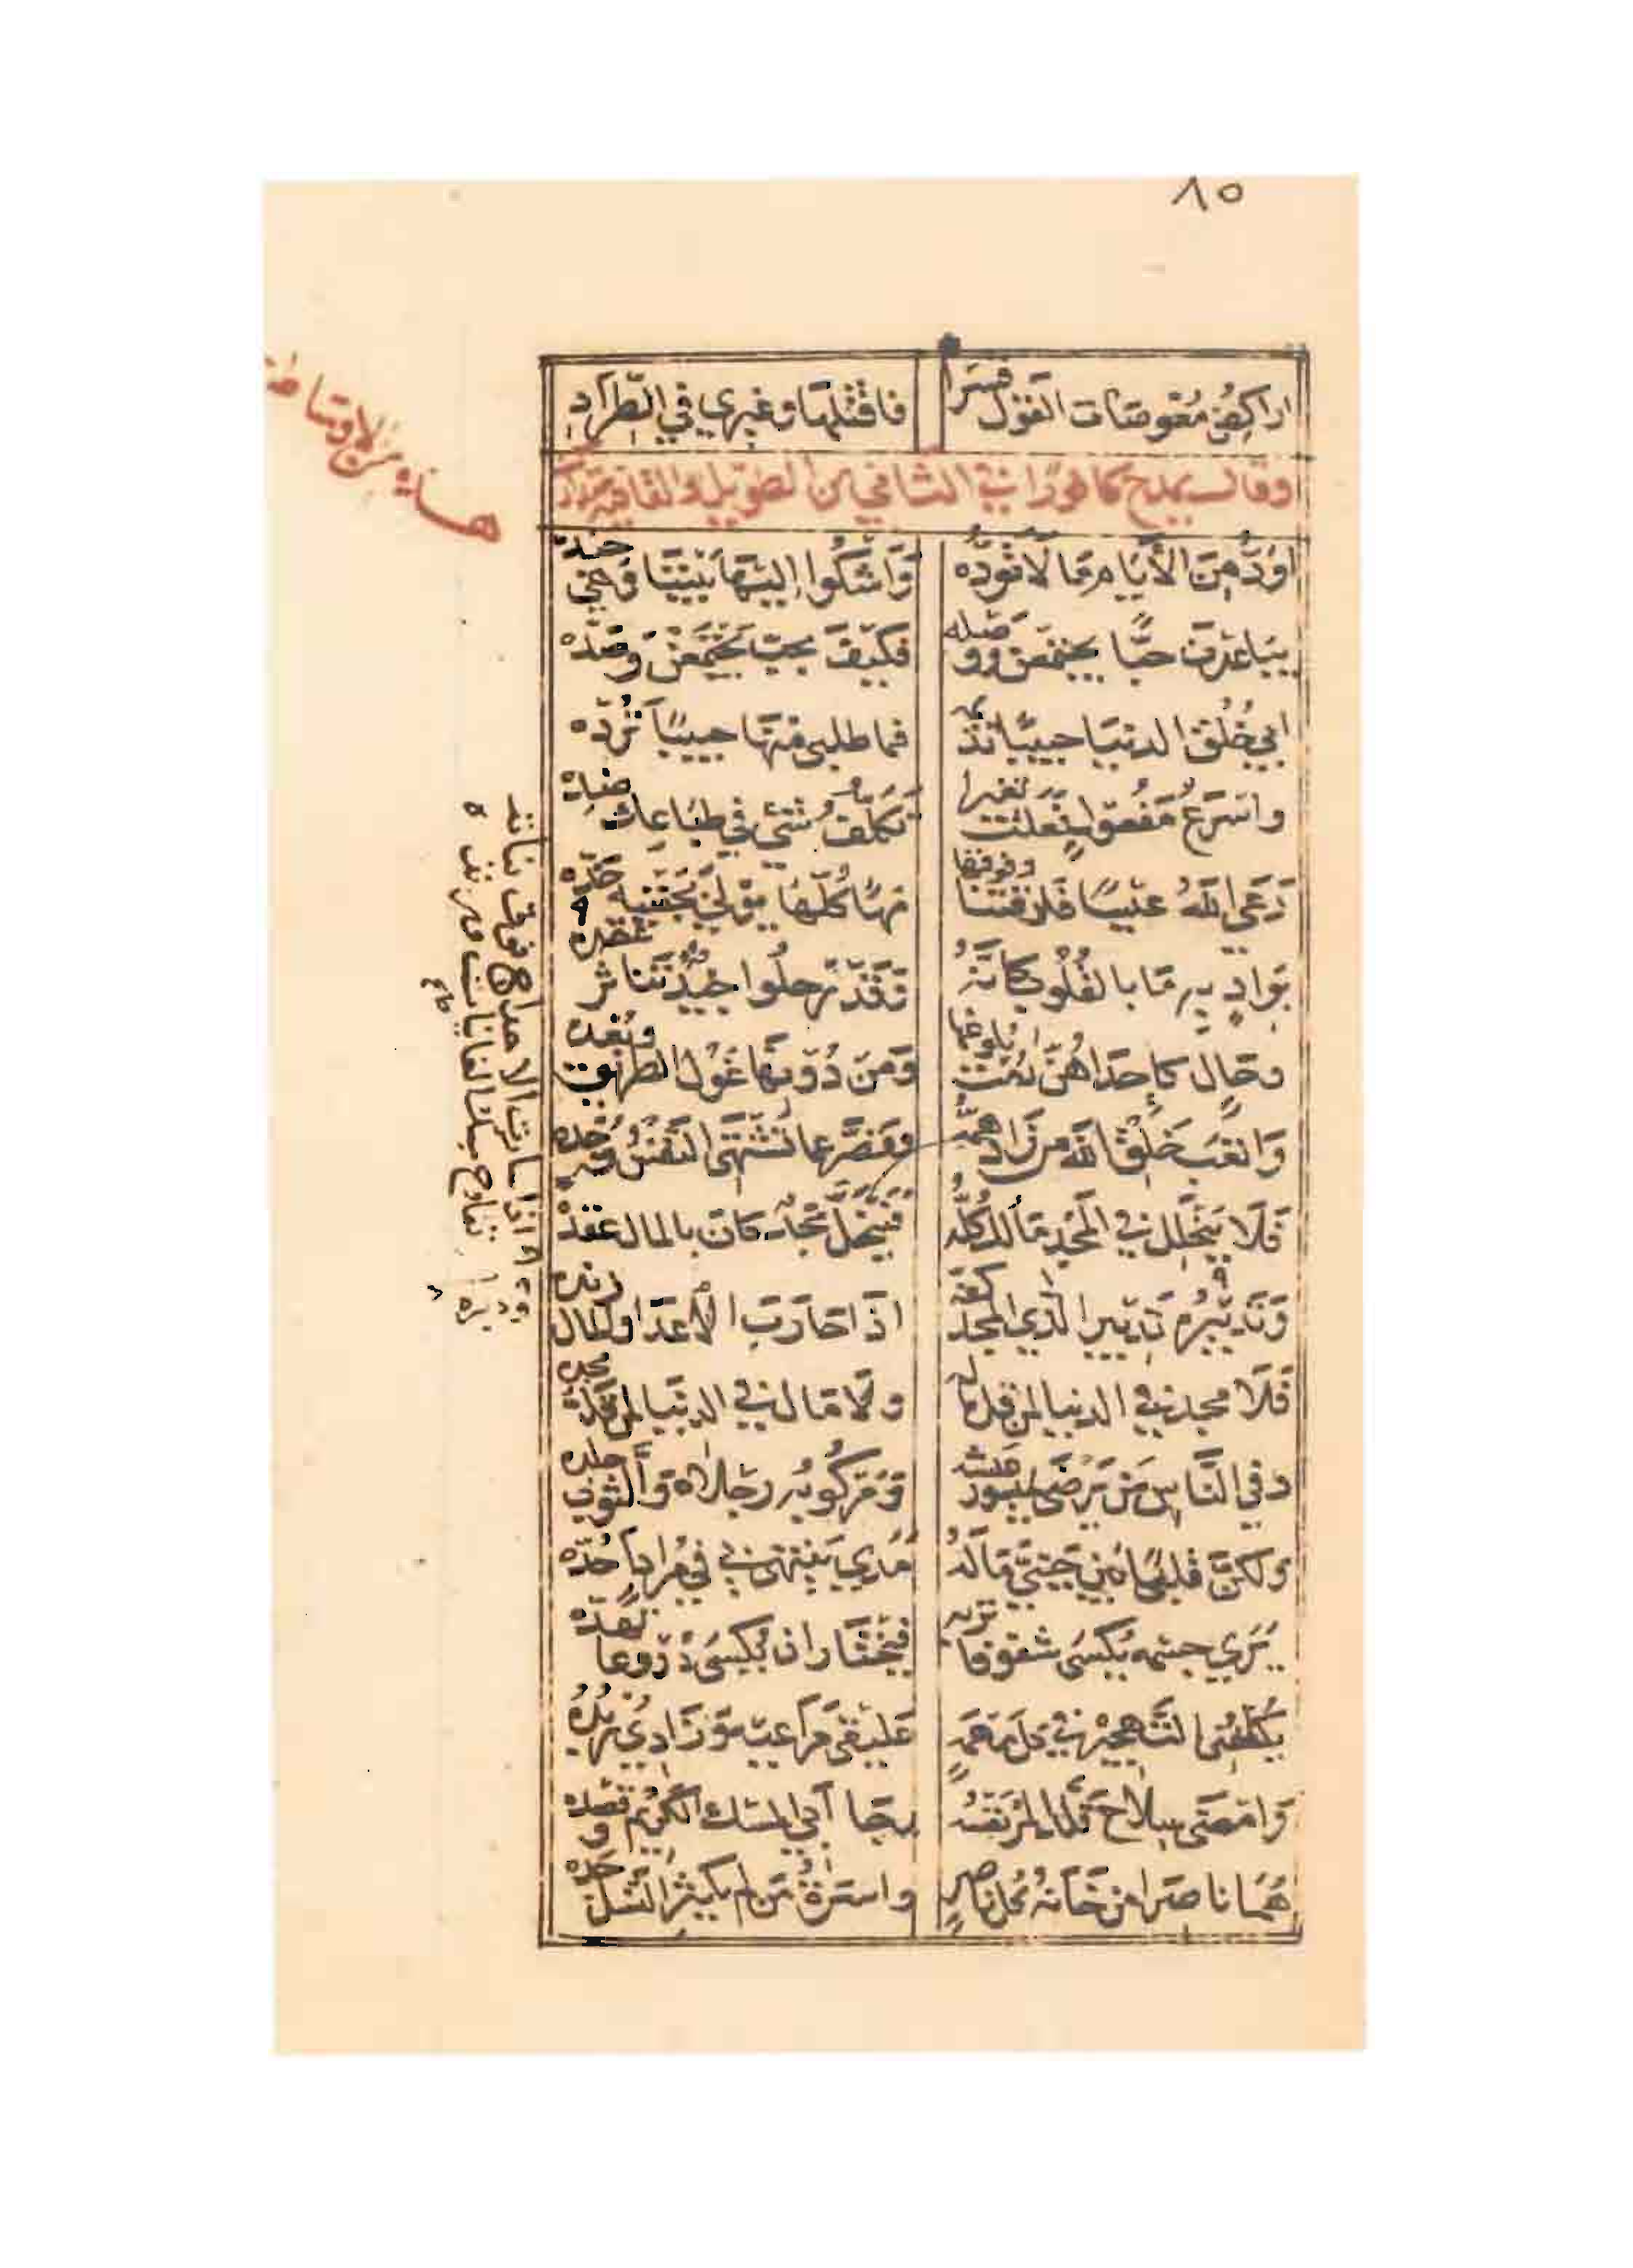 ٨٥
اراكض معوصات القول قسرا فاقتلها وغيري في الطراد
وقال يمدح كافورا في الثاني من الطويل والقافية متدارك
اَوَدُّ مِنَ الأَيَّامِ مَا لَا تَوَدُّه وَاَشْكُوا إِلَيْهَا بَيْنَنَا وَهْيَ جنده
يباعدن حبًّا يجتمعن ووصله فكَيْفَ بحبّ يَجْتَمعْنَ وصدّه
ابي خُلُق الدنيا حبيبًا تديمه فما طلبي منها حبيبًا تَرُدّه
واسرعُ مفعولٍ فعلت تغيرا تكلّفُ شيْءٍ في طِبَاعِك ضده
رَعَى اللهُ عيسًا فارقتنا وفوقها مهًا كلّها يولى بجفنيه خدّه
بوادٍ به ما بالقُلُوب كانّهُ وَقَدْ رحلُوا جيدٌ تناثر عقده
وحالٍ كاحداهُنّ رُمْت بلوغها وَمنْ دُونها غَوْل الطريق وبُعده
وَاتْعَبُ خَلْقِ الله من زاد همّه وقصّر عما تَشْتَهي النفسُ وُجده
فَلَا يَنْحَلِل في المَجْد مَالُك كلّه فَيَنْحَلّ مَجْدٌ كان بالمال عقده
وَدَبّرْهُ تَدبير الّذي المجد كفّه اذا حارَبَ الأعدا والمال زنده
فَلَا مجد في الدنيا لمن قل ماله ولا مال في الدنيا لمن قلّ مجده
وفي النّاسِ مَنْ يَرْضَى بميسور عيشه وَمركُوبُه رجلاه وَالثوب جلده
ولكنّ قلبًا بين جَنبيّ مَا لهُ مَدي ينتهي بي في مُرادٍ اَحُدّه
يَري جسمه يُكسَى شفوفا تربّه فيختار ان يُكْسَى دُروعا تهدّه
يُكلّفُني التَّهجيرَ في كل مَهْمَهٍ عَليقي مَراعيه وَزَادِي رُبْدُهُ
وَامضى سلاحٍ قلّد المرْءُ نَفسَهُ رجا اَبي المسك الكريم وقصده
هُمَا ناصرا من خَانَهُ كُلّ ناصرٍ واسرةُ مَن لم يكثر النّسل جدّه